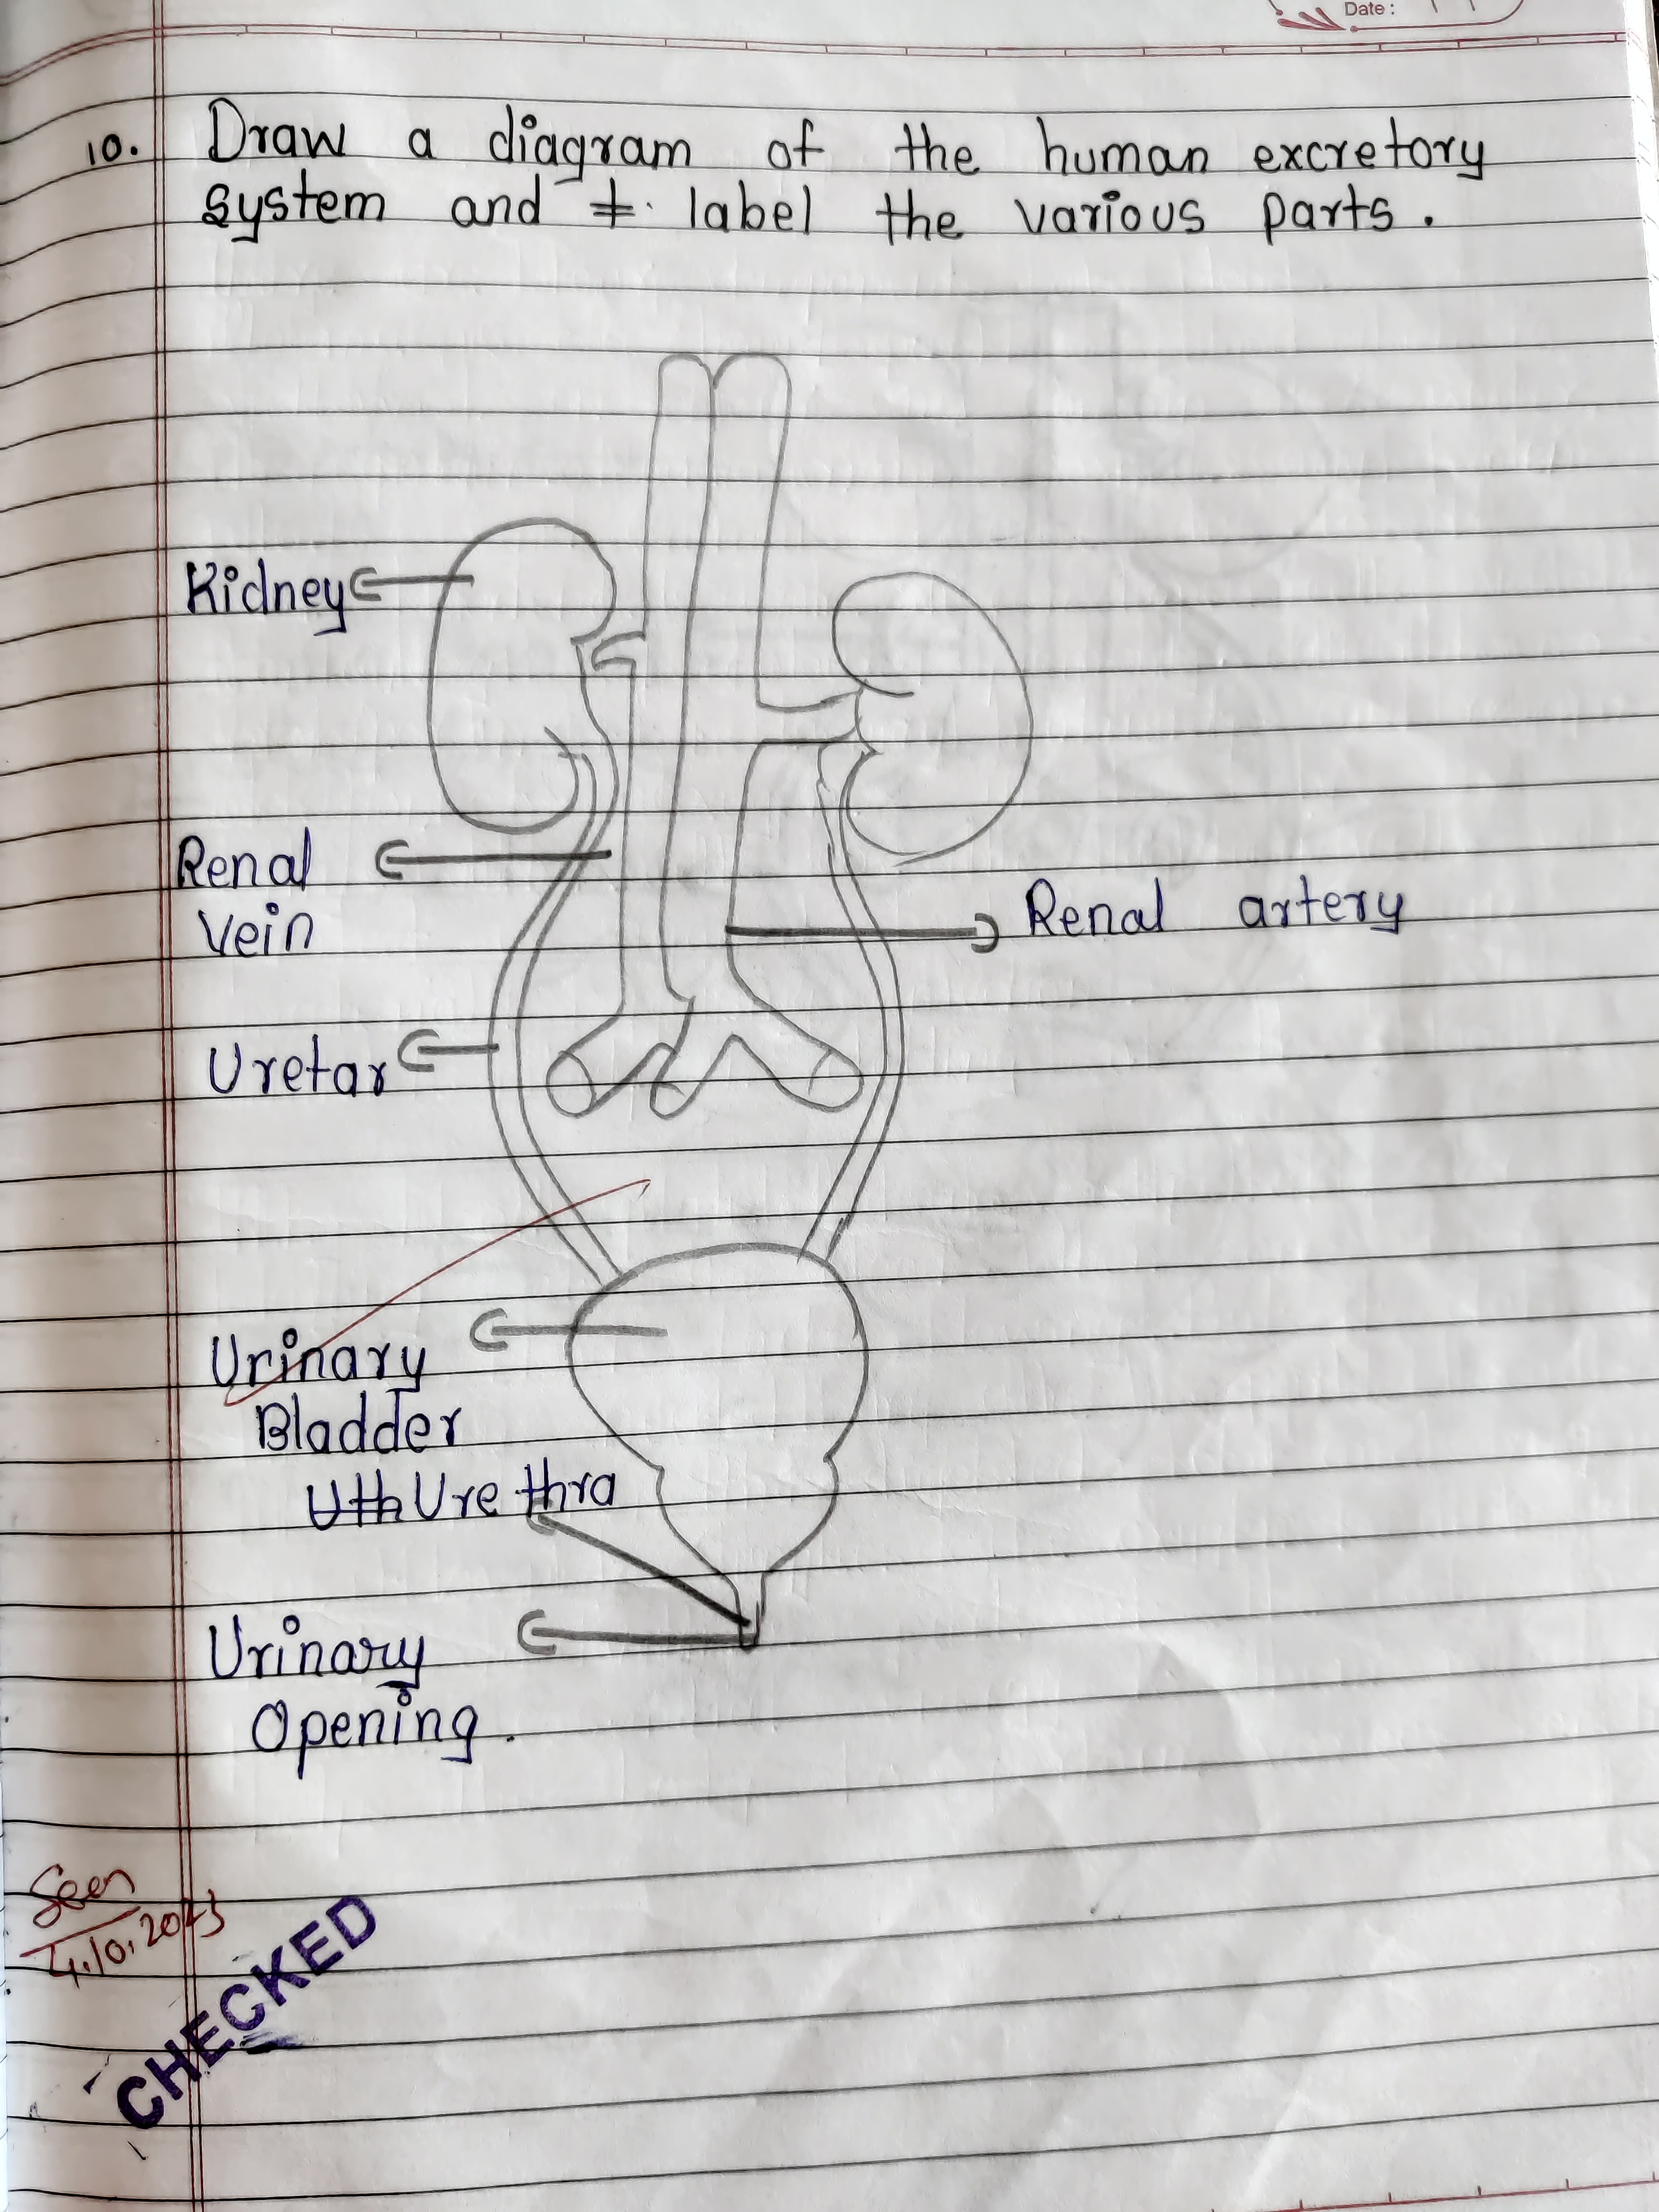 Date :
10. Draw a diagram of the human excretory
system and label the various parts.
Kidney
Renal
Vein
Renal artery
Uretar
Urinary
Bladder
Uth Urethra
Urinary
Opening.
Seen
4.10.2023
CHECKED